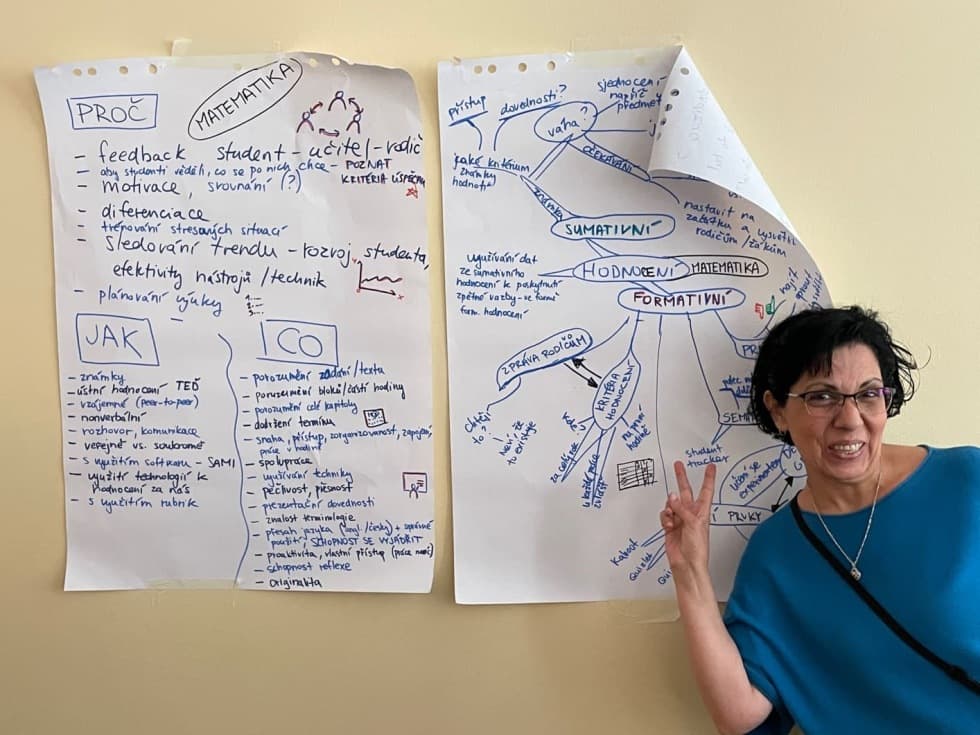 PROČ
MATEMATIKA
- feedback student - učitel - rodič
- aby studenti věděli, co se po nich chce - POZNAT
KRITÉRIA ÚSPĚCHU
- motivace, srovnání (?)
- diferenciace
- trénování stresových situací
- sledování trendu - rozvoj studenta,
efektivity nástrojů / technik
- plánování výuky
JAK
- známky
- ústní hodnocení TEĎ
- vzájemné (peer-to-peer)
- nonverbální
- rozhovor, komunikace
- veřejné vs. soukromé
- s využitím softwaru - SAMI
- využití technologií k
hodnocení za nás
- s využitím rubrik
CO
- porozumění zadání/textu
- porozumění bloků/částí hodiny
- porozumění celé kapitoly
- dodržení termínu
- snaha, přístup, zorganizovanost, zapojení,
práce v hodině
- spolupráce
- využívání techniky
- pečlivost, přesnost
- prezentační dovednosti
- znalost terminologie
- přesah jazyka (angl./český) + správné
použití, SCHOPNOST SE VYJÁDŘIT
- proaktivita, vlastní přístup (práce navíc)
- schopnost reflexe
- originalita
přístup
dovednosti?
váha?
sjednocení
napříč
předměty
jaké kritérium
známky
hodnotí
OČEKÁVÁNÍ
známka
nastavit na
začátku a vysvětlit
rodičům / žákům
SUMATIVNÍ
HODNOCENÍ MATEMATIKA
využívání dat
ze sumativního
hodnocení k poskytnutí
zpětné vazby - ve formě
form. hodnocení
FORMATIVNÍ
najít
ZPRÁVA RODIČŮM
chtějí
to?
není, že
tu existuje
KRITÉRIA
HODNOCENÍ
za celý rok
u každé práce
zvlášť
na první
hodině
student
tracker
PRVKY
Kahoot